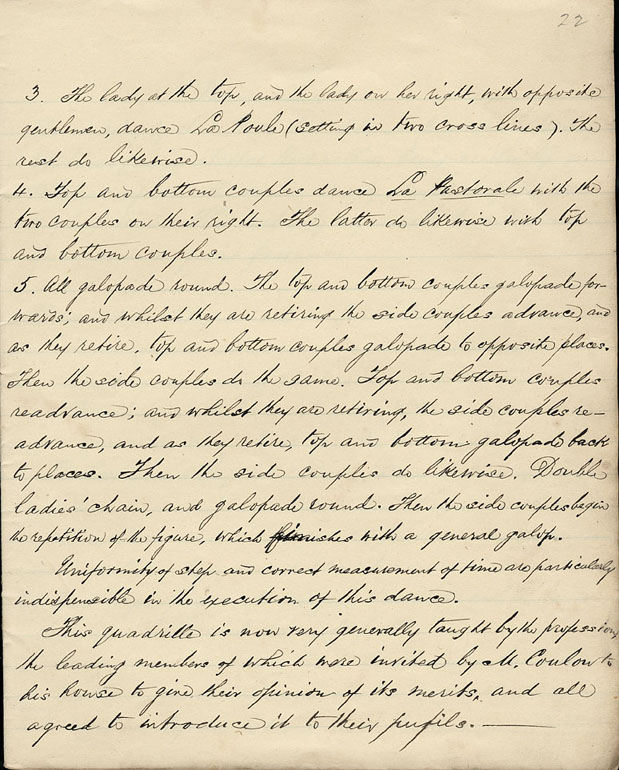 22
3. The lady at the top, and the lady on her right, with opposite
gentlemen, dance La Poule (setting in two cross lines). The
rest do likewise.
4. Top and bottom couples dance La Pastorale with the
two couples on their right. The latter do likewise with top
and bottom couples.
5. All galopade round. The top and bottom couples galopade for-
wards; and whilst they are retiring the side couples advance, and
as they retire, top and bottom couples galopade to opposite places.
Then the side couples do the same. Top and bottom couples
readvance; and whilst they are retiring, the side couples re-
advance, and as they retire, top and bottom galopade back
to places. Then the side couples do likewise. Double
ladies' chain, and galopade round. Then the side couples begin
the repetition of the figure, which finishes with a general galop.
Uniformity of step and correct measurement of time are particularly
indispensible in the execution of this dance.
This quadrille is now very generally taught by the profession,
the leading members of which were invited by M. Coulon to
his house to give their opinion of its merits, and all
agreed to introduce it to their pupils. —